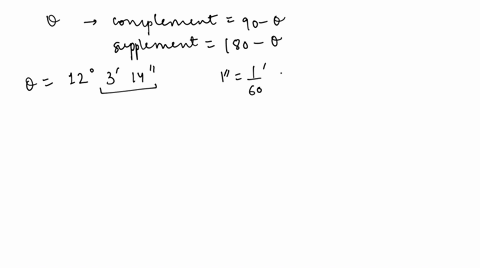 θ → complement = 90 - θ
supplement = 180 - θ
θ = 12° 3' 14" 1" = 1/60 '